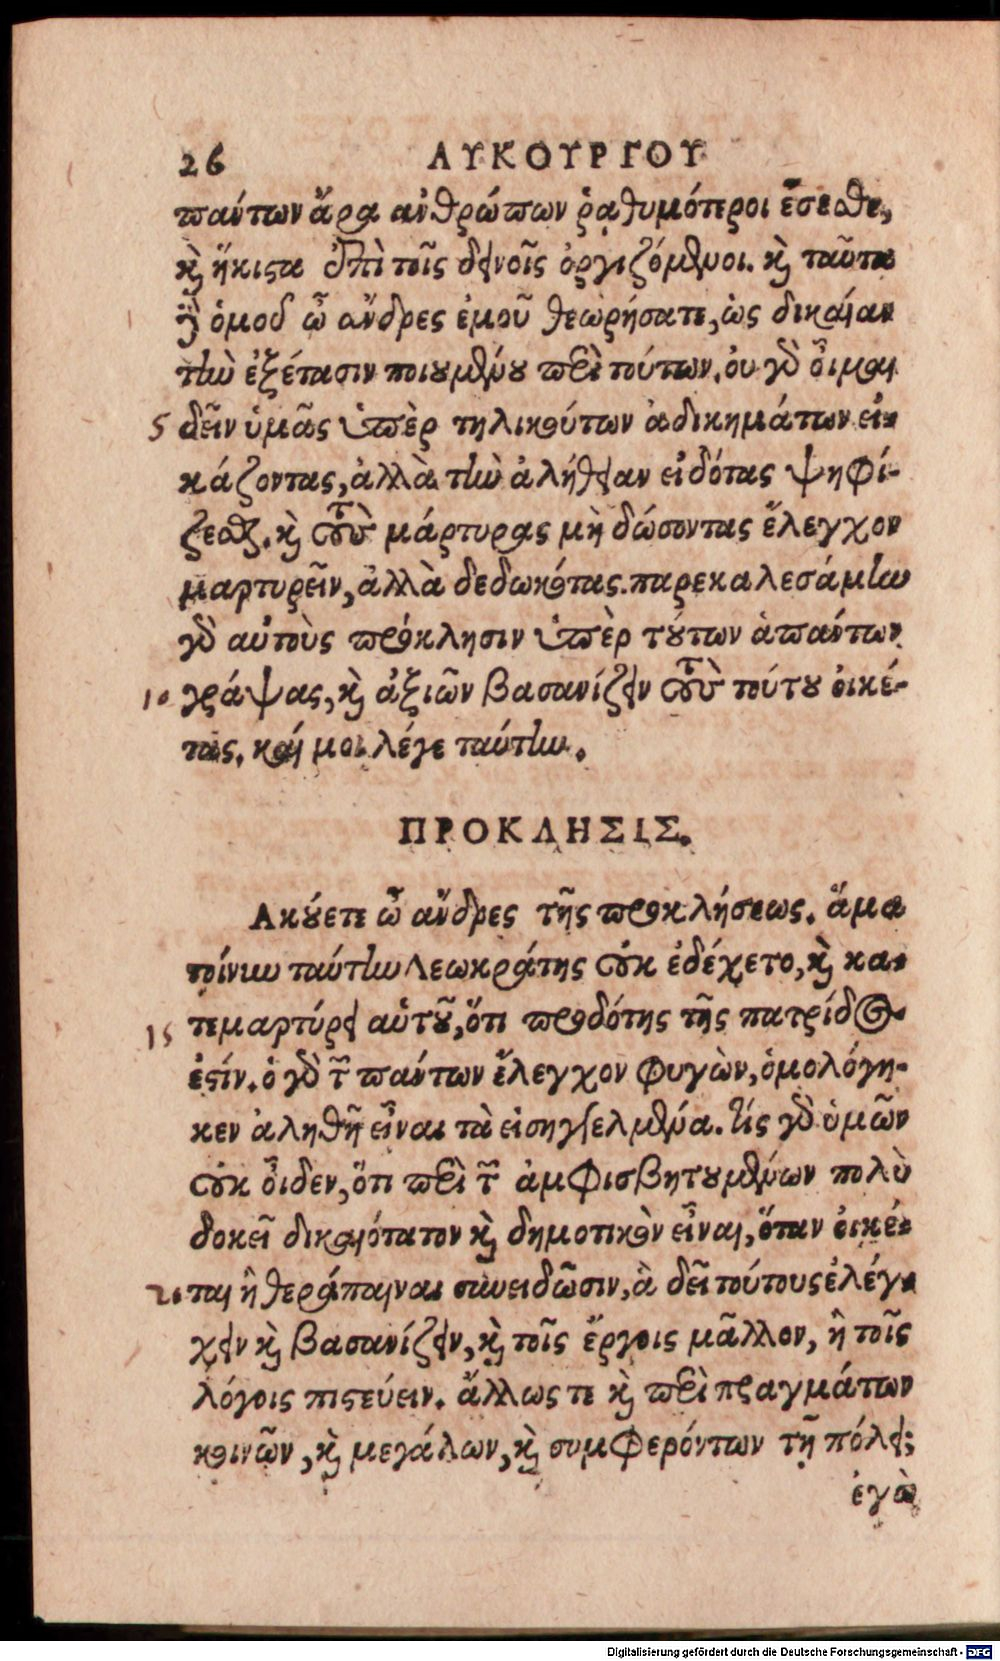 26 ΛΥΚΟΥΡΓΟΥ
πάντων ἄρα ἀνθρώπων ῥᾳθυμότεροι ἔσεσθε,
καὶ ἥκιστα ἐπὶ τοῖς δεινοῖς ὀργιζόμενοι. καὶ ταῦτα
δ' ὁμοῦ ὦ ἄνδρες ἐμοῦ θεωρήσατε, ὡς δικαίαν
τὴν ἐξέτασιν ποιουμένου περὶ τούτων. οὐ γὰρ οἶμαι
5 δεῖν ὑμᾶς ὑπὲρ τηλικούτων ἀδικημάτων εἰ-
κάζοντας, ἀλλὰ τὴν ἀλήθειαν εἰδότας ψηφί-
ζεσθαι. καὶ τοὺς μάρτυρας μὴ δώσοντας ἔλεγχον
μαρτυρεῖν, ἀλλὰ δεδωκότας. παρεκαλεσάμην
γὰρ αὐτοὺς πρόκλησιν ὑπὲρ τούτων ἁπάντων
10 γράψας, καὶ ἀξιῶν βασανίζειν τοὺς τούτου οἰκέ-
τας. καί μοι λέγε ταύτην.
ΠΡΟΚΛΗΣΙΣ.
Ακούετε ὦ ἄνδρες τῆς προκλήσεως. ἅμα
τοίνυν ταύτην Λεωκράτης οὐκ ἐδέχετο, καὶ κα-
15 τεμαρτύρει αὑτοῦ, ὅτι προδότης τῆς πατρίδος
ἐστίν. ὁ γὰρ τὸν πάντων ἔλεγχον φυγὼν, ὁμολόγη-
κεν ἀληθῆ εἶναι τὰ εἰσηγγελμένα. τίς γὰρ ὑμῶν
οὐκ οἶδεν, ὅτι περὶ τῶν ἀμφισβητουμένων πολὺ
δοκεῖ δικαιότατον καὶ δημοτικὸν εἶναι, ὅταν οἰκέ-
20 ται ἢ θεράπαιναι συνειδῶσιν, ἃ δεῖ τούτους ἐλέγ-
χειν καὶ βασανίζειν, καὶ τοῖς ἔργοις μᾶλλον, ἢ τοῖς
λόγοις πιστεύειν. ἄλλως τε καὶ περὶ πραγμάτων
κοινῶν, καὶ μεγάλων, καὶ συμφερόντων τῇ πόλει;
ἐγὼ
Digitalisierung gefördert durch die Deutsche Forschungsgemeinschaft - DFG